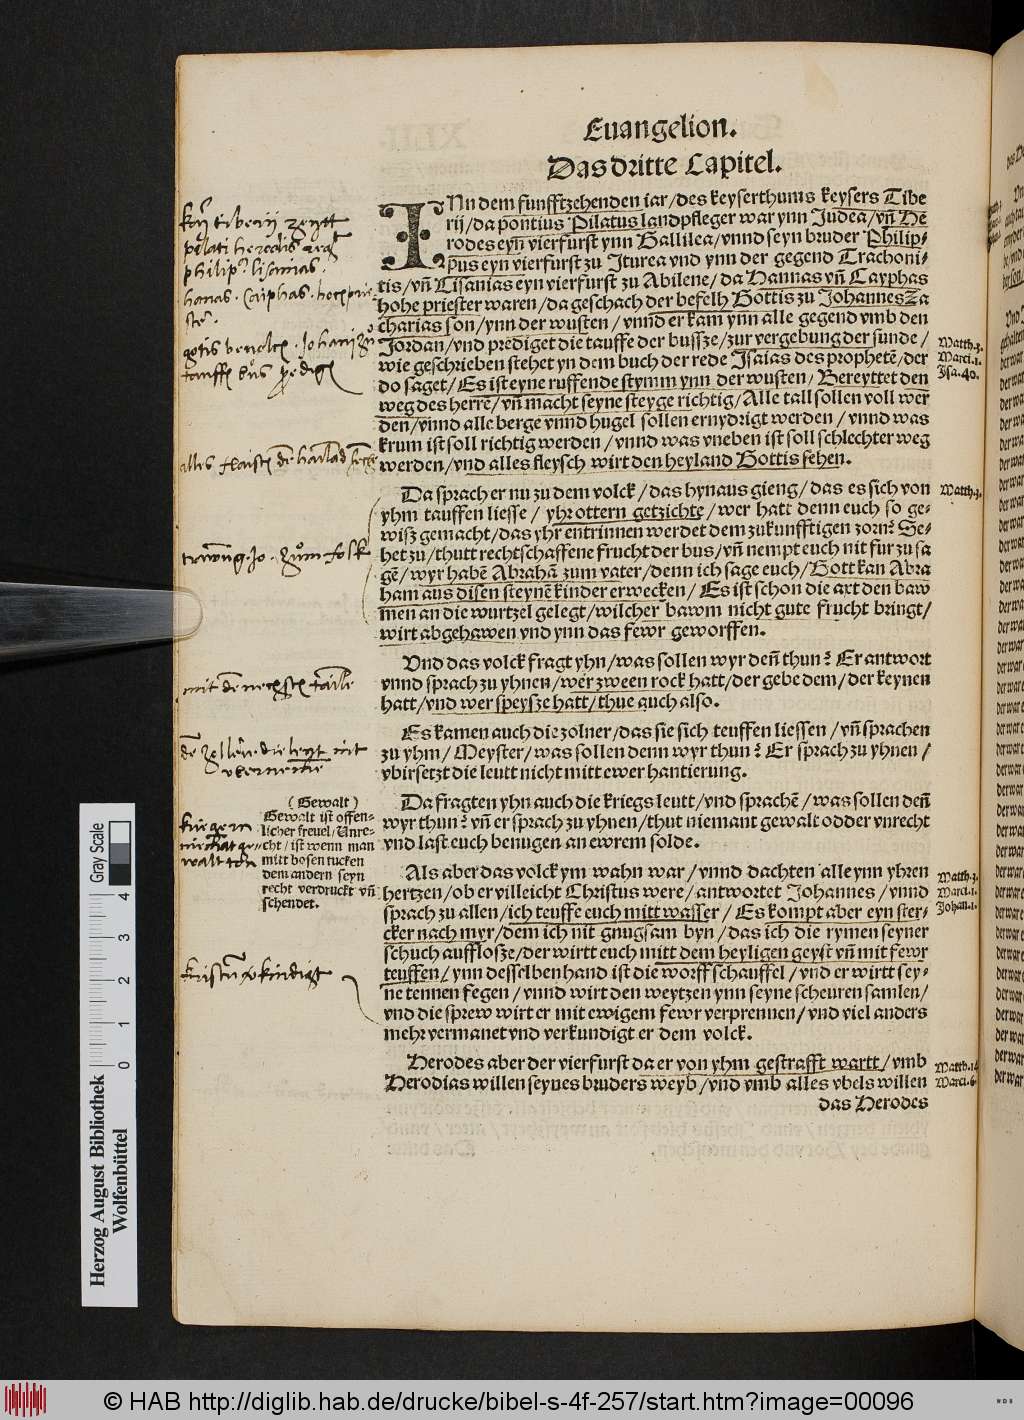 Euangelion.
Das dritte Capitel.
INn dem funfftzehenden iar/des keyserthums keysers Tibe
rij/da pontius Pilatus landpfleger war ynn Judea/vñ He
rodes eyñ vierfurst ynn Gallilea/vnnd seyn bruder Philip-
pus eyn vierfurst zu Iturea vnd ynn der gegend Trachoni-
tis/vñ Lisanias eyn vierfurst zu Abilene/da Hannas vñ Cayphas
hohe priester waren/da geschach der befelh Gottis zu Johannes Za
charias son/ynn der wusten/vnnd er kam ynn alle gegend vmb den
Jordan/vnd prediget die tauffe der bussze/zur vergebung der sunde/
wie geschrieben stehet yn dem buch der rede Isaias des prophetē/der
do saget/Es ist eyne ruffende stymm ynn der wusten/Bereyttet den
weg des herrē/vñ macht seyne steyge richtig/Alle tall sollen voll wer
den/vnnd alle berge vnnd hugel sollen ernydrigt werden/vnnd was
krum ist soll richtig werden/vnnd was vneben ist soll schlechter weg
werden/vnd alles fleysch wirt den heyland Gottis sehen.
Matth.3.
Marci.1.
Isa.40.
Da sprach er nu zu dem volck/das hynaus gieng/das es sich von
yhm tauffen liesse/yhr ottern getzichte/wer hatt denn euch so ge-
wisz gemacht/das yhr entrinnen werdet dem zukunfftigen zorn? Se-
het zu/thutt rechtschaffene frucht der bus/vñ nempt euch nit fur zu sa
gē/wyr habē Abrahā zum vater/denn ich sage euch/Gott kan Abra
ham aus disen steynē kinder erwecken/Es ist schon die axt den baw
men an die wurtzel gelegt/wilcher bawm nicht gute frucht bringt/
wirt abgehawen vnd ynn das fewr geworffen.
Matth.3.
Vnd das volck fragt yhn/was sollen wyr deñ thun? Er antwort
vnnd sprach zu yhnen/wer zween rock hatt/der gebe dem/der keynen
hatt/vnd wer speysze hatt/thue auch also.
Es kamen auch die zolner/das sie sich teuffen liessen/vñ sprachen
zu yhm/Meyster/was sollen denn wyr thun? Er sprach zu yhnen/
vbirsetzt die leutt nicht mitt ewer hantierung.
Da fragten yhn auch die kriegs leutt/vnd sprachē/was sollen deñ
wyr thun? vñ er sprach zu yhnen/thut niemant gewalt odder vnrecht
vnd last euch benugen an ewrem solde.
(Gewalt)
Gewalt ist offen-
licher freuel/Vnre-
cht/ist wenn man
mitt bosen tucken
dem andern seyn
recht verdruckt vñ
schendet.
Als aber das volck ym wahn war/vnnd dachten alle ynn yhren
hertzen/ob er villeicht Christus were/antwortet Johannes/vnnd
sprach zu allen/ich teuffe euch mitt wasser/Es kompt aber eyn ster-
cker nach myr/dem ich nit gnugsam byn/das ich die rymen seyner
schuch auffloße/der wirtt euch mitt dem heyligen geyst vñ mit fewr
teuffen/ynn desselben hand ist die worff schauffel/vnd er wirtt sey-
ne tennen fegen/vnnd wirt den weytzen ynn seyne scheuren samlen/
vnd die sprew wirt er mit ewigem fewr verprennen/vnd viel anders
mehr vermanet vnd verkundigt er dem volck.
Matth.3.
Marci.1.
Johan.1.
Herodes aber der vierfurst da er von yhm gestrafft wartt/vmb
Herodias willen seynes bruders weyb/vnd vmb alles vbels willen
das Herodes
Matth.14
Marci.6.
Herzog August Bibliothek
Wolfenbüttel
Gray Scale
0 1 2 3 4
© HAB http://diglib.hab.de/drucke/bibel-s-4f-257/start.htm?image=00096